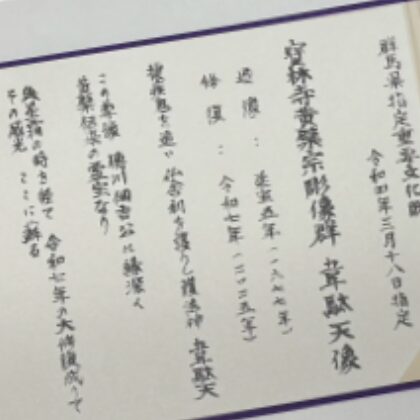 群馬県指定重要文化財
令和四年三月十八日指定
宝林寺黄檗宗彫像群 韋駄天像
造像：延宝五年（一六七七年）
修復：令和七年（二〇二五年）
捷疾鬼を追い 仏舎利を護りし護法神 韋駄天
この尊像 徳川綱吉公に縁深く
黄檗伝来の霊宝なり
の時を経て 令和七年の大修復成りて
その
ここに蘇る